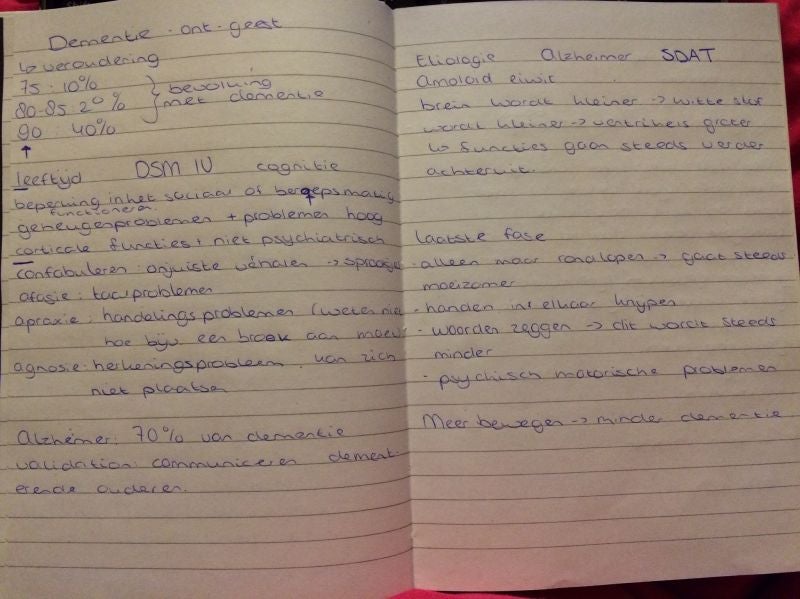 Dementie - ont - geest
↳ veroudering
75 : 10%
80-85 : 20% } bevolking met dementie
90 : 40%
↑
leeftijd DSM IV cognitie
beperking in het sociaal of beroepsmatig
functioneren.
geheugenproblemen + problemen hoog
corticale functies + niet psychiatrisch
confabuleren : onjuiste verhalen →
afasie : taalproblemen
apraxie : handelingsproblemen (weten niet
hoe bijv een broek aan moet
agnosie : herkeningsprobleem. van zich
niet plaatsen
Alzhemer : 70% van dementie
communiceren dement.
erende ouderen.
Etiologie Alzheimer SDAT
Amoloid eiwit
brein wordt kleiner → witte stof
wordt kleiner → ventrikels groter
↳ functies gaan steeds verder
achteruit.
laatste fase
- alleen maar rondlopen → gaat steeds
moeizamer
- handen in elkaar knypen
- woorden zeggen → dit wordt steeds
minder
- psychisch motorische problemen
Meer bewegen → minder dementie